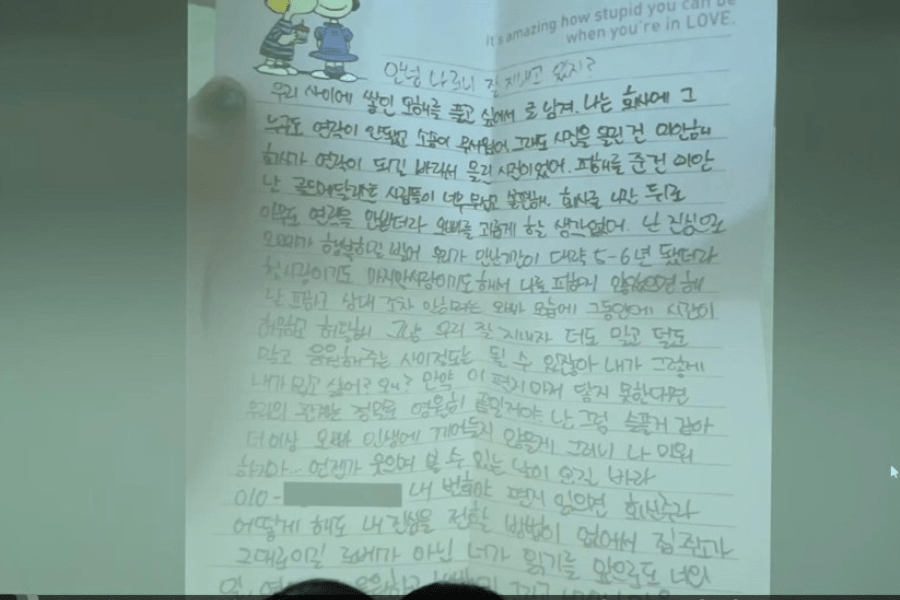 It's amazing how stupid you can be
when you're in LOVE.
안녕 나 잘 지내고 있지?
우리 사이에 쌓인 오해를 풀고 싶어서 글 남겨. 나는 회사에 그
누구도 연락이 안됐고 소름이 무서웠어. 그래도 사진을 올린 건 미안해
회사가 연락이 되길 바라서 올린 사진이었어. 피해를 준건 미안
난 골드메달리스트 사람들이 너무 무섭고 불편해. 회사를 나간 뒤로
아무도 연락을 안받더라 오빠를 괴롭게 할 생각없어. 난 진심으로
오빠가 행복하길 빌어 우리가 만난기간이 대략 5-6년 됐더라
첫사랑이기도 마지막사랑이기도해서 나를 피하지 않았으면 해
난 피하고 상대 조차 안하려는 오빠 모습에 그동안에 시간이
허무하고 허탈해 그냥 우리 잘 지내자 더도 말고 덜도
말고 응원해주는 사이정도는 될 수 있잖아 내가 그렇게
내가 밉고 싫어? 왜? 만약 이 편지마저 닿지 못한다면
우리의 관계는 정말로 영원히 끝일거야 난 그럼 슬플거 같아
더이상 오빠 인생에 게어들지 않을게 그러니 나 미워
하지마.. 언젠가 웃으며 볼 수 있는 날이 오길 바라
010- 내 번호야 편지 읽으면 회신주라
어떻게 해도 내 진심을 전할 방법이 없어서 집 주소가
그대로이길 로베가 아닌 너가 읽기를 앞으로도 너의
일,